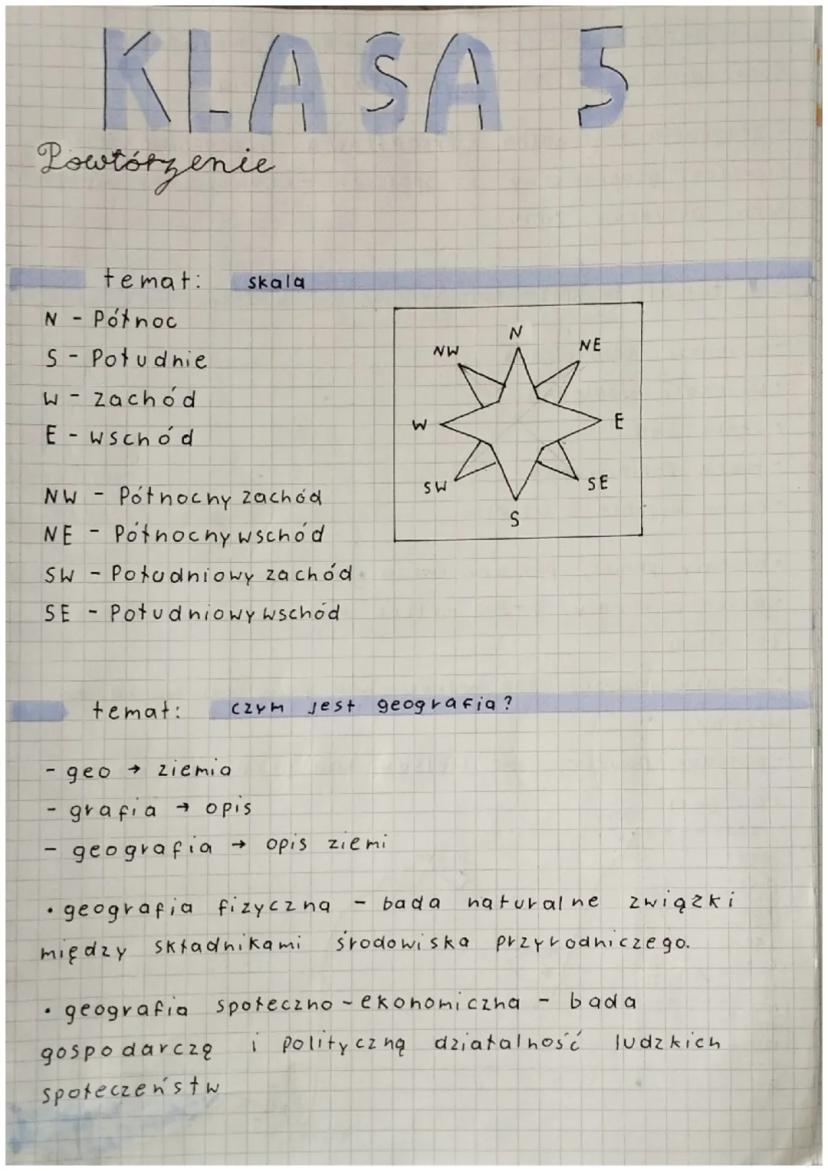 KLASA 5
Powtórzenie
temat: skala
N - Północ
S - Południe
W - zachód
E - wschód
NW - Północny zachód
NE - Północny wschód
SW - Południowy zachód
SE - Południowy wschód
N
NW NE
W E
SW SE
S
temat: czym jest geografia?
- geo → ziemia
- grafia → opis
- geografia → opis ziemi
• geografia fizyczna - bada naturalne związki
między składnikami środowiska przyrodniczego.
• geografia społeczno-ekonomiczna - bada
gospodarczę i polityczną działalność ludzkich
społeczeństw